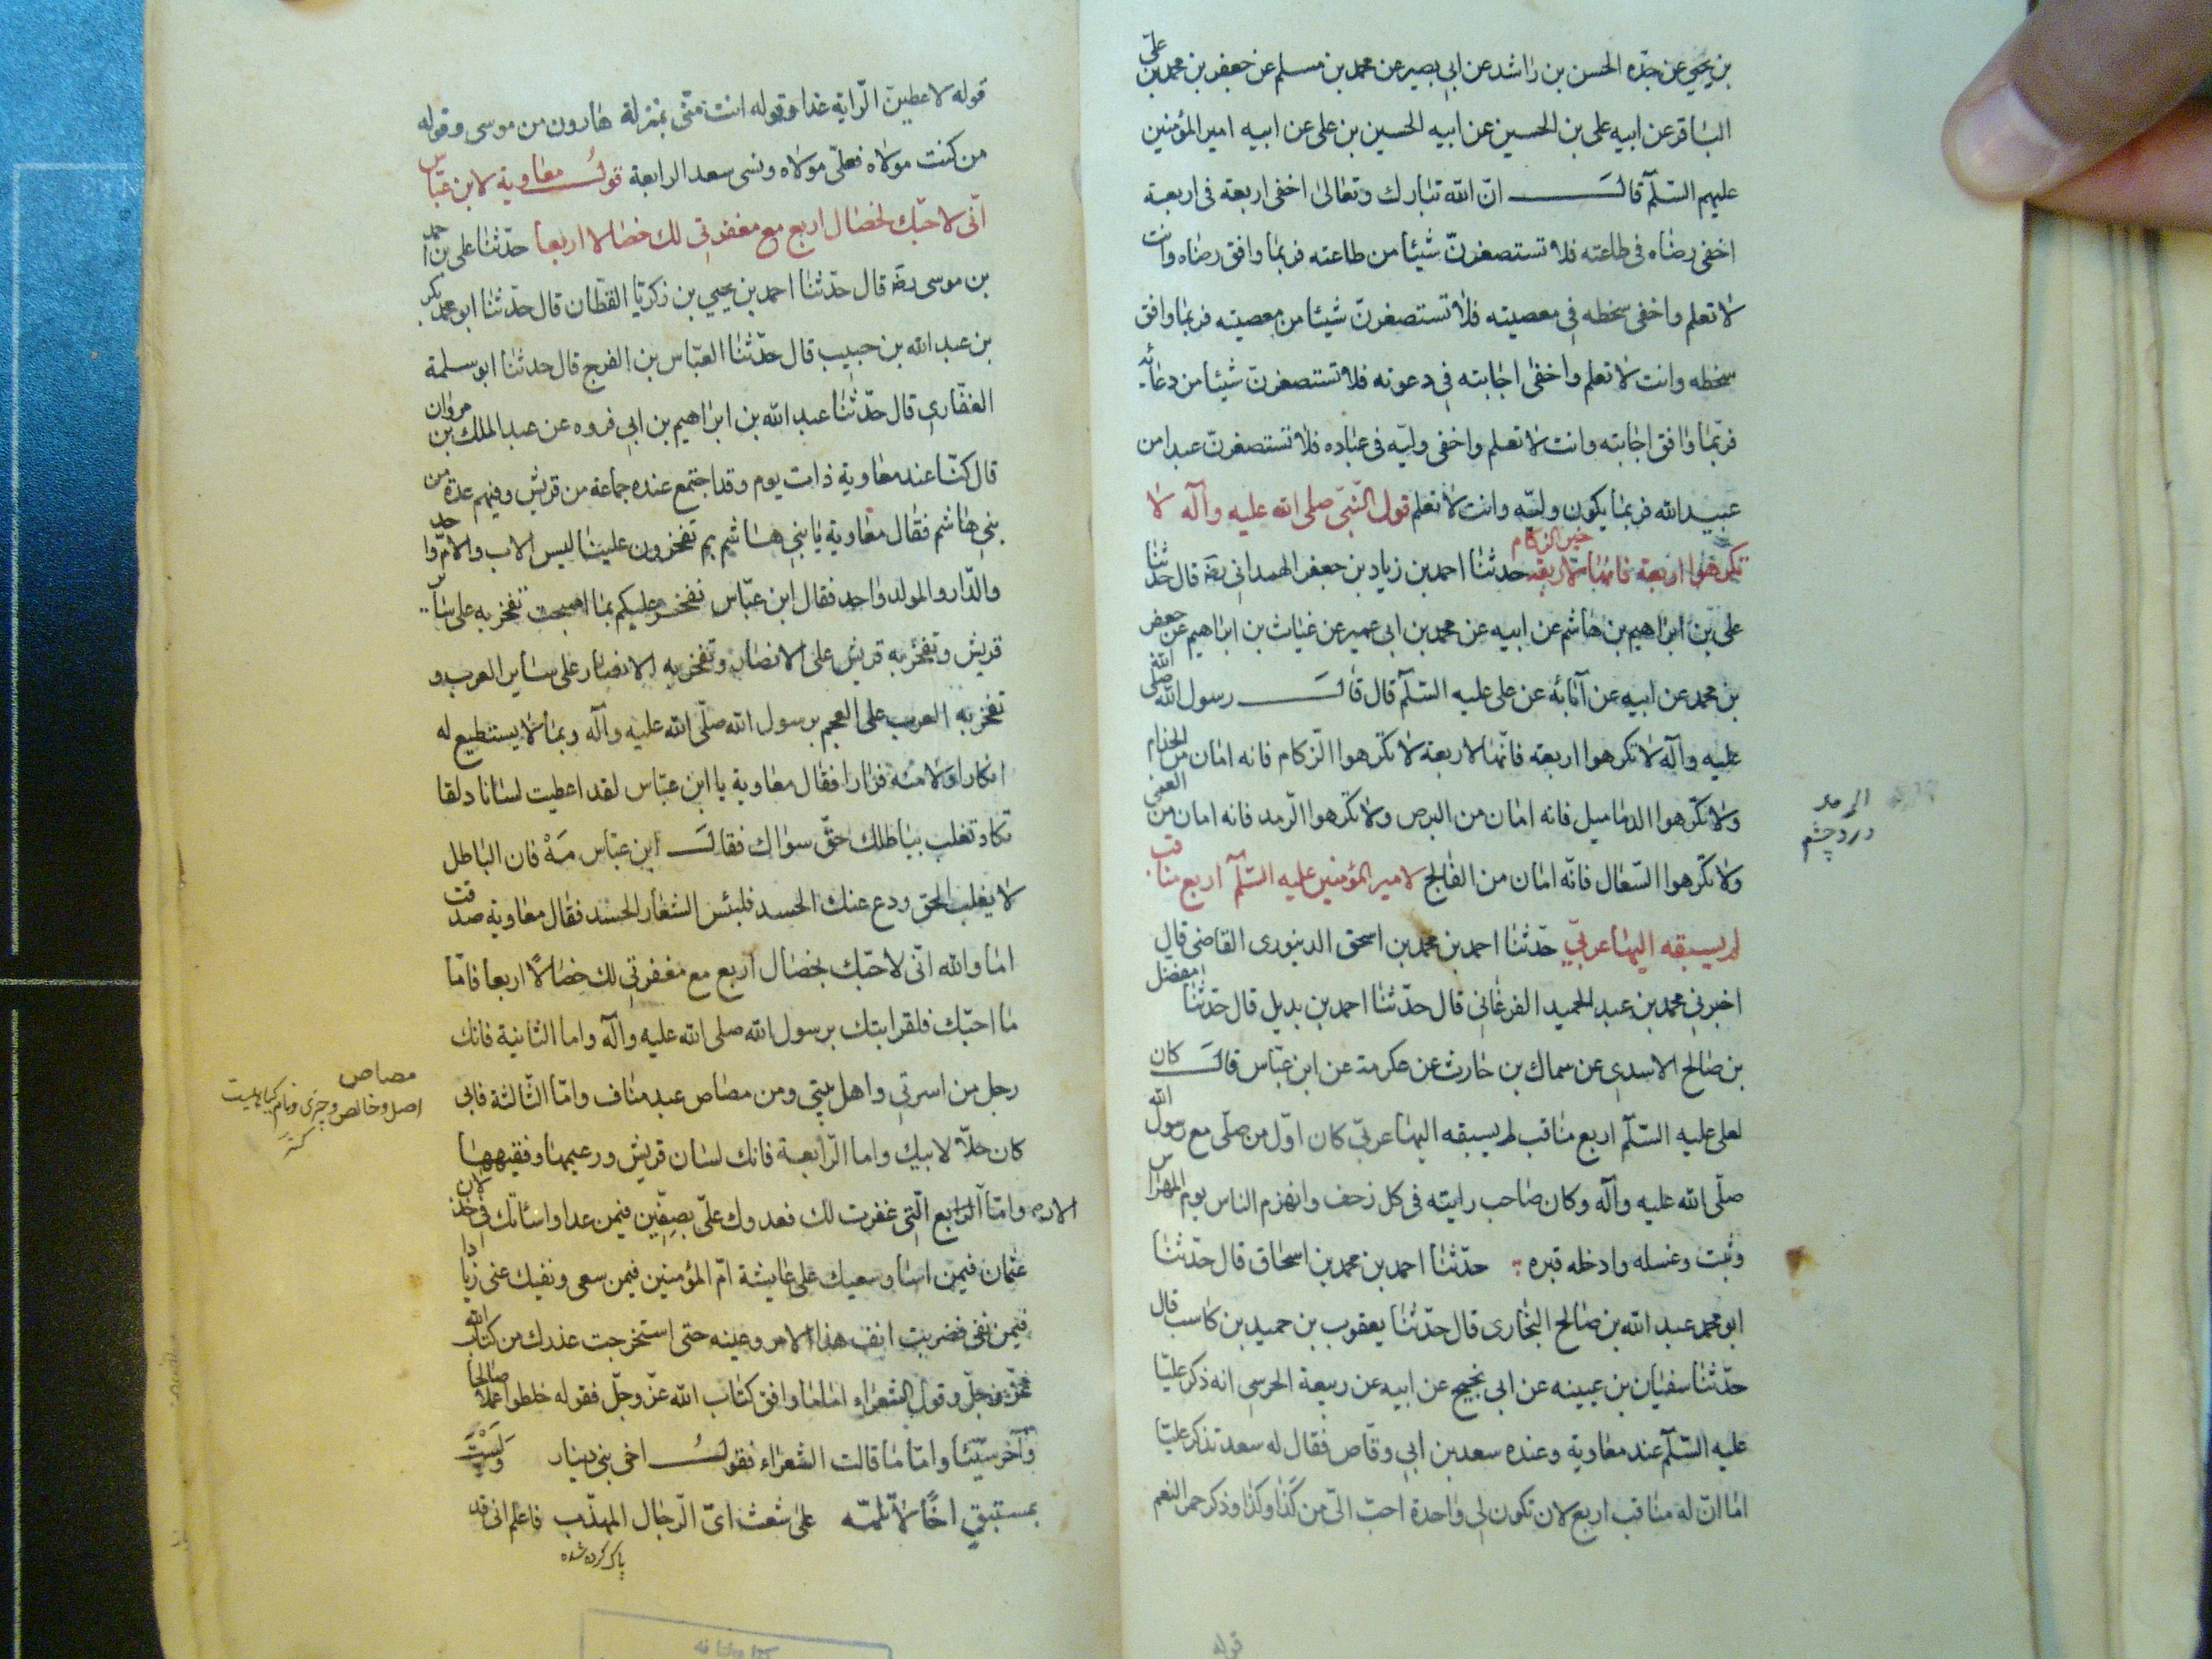 بن يحيى عن جدّه الحسن بن راشد عن ابى بصير عن محمد بن مسلم عن جعفر بن محمد بن علىّ
الباقر عن ابيه على بن الحسين عن ابيه الحسين بن على عن ابيه امير المؤمنين
عليهم السّلم قال انّ الله تبارك وتعالى اخفى اربعة فى اربعة
اخفى رضاه فى طاعته فلا تستصغرنّ شيئا من طاعته فربما وافق رضاه وانت
لا تعلم واخفى سخطه فى معصيته فلا تستصغرنّ شيئا من معصيته فربما وافق
سخطه وانت لا تعلم واخفى اجابته فى دعوته فلا تستصغرنّ شيئا من دعائه
فربّما وافق اجابته وانت لا تعلم واخفى وليّه فى عباده فلا تستصغرنّ عبدا من
عبيد الله فربما يكون وليّه وانت لا تعلم قول النّبىّ صلى الله عليه وآله لا
تكرهوا اربعة فانها لاربعة حدثنا احمد بن زياد بن جعفر الهمدانى رضه قال حدثنا
على بن ابراهيم بن هاشم عن ابيه عن محمد بن ابى عمير عن غياث بن ابراهيم عن جعفر
بن محمد عن ابيه عن آبائه عن على عليه السّلم قال قال رسول الله صلى الله
عليه وآله لا تكرهوا اربعة فانّها لاربعة لا تكرهوا الزّكام فانه امان من الجذام
ولا تكرهوا الدماميل فانه امان من البرص ولا تكرهوا الرّمد فانه امان من العمى
ولا تكرهوا السّعال فانّه امان من الفالج لامير المؤمنين عليه السّلم اربع مناقب
لم يسبقه اليها عربىّ حدّثنا احمد بن محمد بن اسحق الدينورى القاضى قال
اخبرنى محمد بن عبد الحميد الفرغانى قال حدّثنا احمد بن بديل قال حدّثنا مفضل
بن صالح الاسدى عن سماك بن حارث عن عكرمة عن ابن عبّاس قال كان
لعلى عليه السّلم اربع مناقب لم يسبقه اليها عربىّ كان اوّل من صلّى مع رسول الله
صلّى الله عليه وآله وكان صاحب رايته فى كل زحف وانهزم الناس يوم المهراس
وثبت وغسله وادخله قبره حدّثنا احمد بن محمد بن اسحاق قال حدّثنا
ابو محمد عبد الله بن صالح البخارى قال حدّثنا يعقوب بن حميد بن كاسب قال
حدّثنا سفيان بن عيينه عن ابى نجيح عن ابيه عن ربيعة الحرسى انه ذكر عليّا
عليه السّلم عند معاوية وعنده سعد بن ابى وقاص فقال له سعد تذكر عليّا
اما انّ له مناقب اربع لان تكون لى واحدة احبّ الىّ من كذا وكذا وذكر حمر النعم
خير الزكام
الرمد
درد چشم
قوله
قوله لاعطينّ الرّاية غدا وقوله انت منّى بمنزلة هارون من موسى وقوله
من كنت مولاه فعلىّ مولاه ونسى سعد الرابعة قول معاوية لابن عبّاس
انّى لاحبّك لخصال اربع مع مغفرتى لك خصالا اربعا حدّثنا على بن احمد
بن موسى رضه قال حدّثنا احمد بن يحيى بن زكريّا القطّان قال حدّثنا ابو محمد بكر
بن عبد الله بن حبيب قال حدّثنا العبّاس بن الفرج قال حدثنا ابو سلمة
الغفّارى قال حدّثنا عبد الله بن ابراهيم بن ابى فروه عن عبد الملك بن مروان
قال كنّا عند معاوية ذات يوم وقد اجتمع عنده جماعة من قريش وفيهم عدة من
بنى هاشم فقال معاوية يا بنى هاشم بم تفخرون علينا اليس الاب والامّ واحد
والدّار والمولد واحد فقال ابن عبّاس نفخر عليكم بما اصبحت تفخر به على سائر
قريش وتفخر به قريش على الانصار وتفخر به الانصار على ساير العرب و
تفخر به العرب على العجم برسول الله صلّى الله عليه وآله وبما لا يستطيع له
انكارا ولا منه فرارا فقال معاوية يا ابن عبّاس لقد اعطيت لسانا دلقا
تكاد تغلب بباطلك حقّ سواك فقال ابن عبّاس مَهْ فان الباطل
لا يغلب الحق ودع عنك الحسد فلبئس الشعار الحسد فقال معاوية صدقت
اما والله انّى لاحبّك لخصال اربع مع مغفرتى لك خصالًا اربعا فامّا
ما احبّك فلقرابتك برسول الله صلى الله عليه وآله واما الثانية فانك
رجل من اسرتى واهل بيتى ومن مصاص عبد مناف وامّا الثّالثة فابى
كان خلّا لابيك واما الرّابعة فانك لسان قريش وزعيمها وفقيهها
وامّا الاربع الّتى غفرت لك فعدوك علىّ بصفّين فيمن عدا واسائتك فى خذلان
عثمان فيمن اسا وسعيك على عايشة امّ المؤمنين فيمن سعى ونفيك عنى زيادا
فيمن نفى فضربت انف هذا الامر وعينه حتى استخرجت عذرك من كتاب الله
عزّ وجلّ وقول الشعراء اما ما وافق كتاب الله عزّ وجلّ فقوله خلطوا عملا صالحا
وآخر سيّئا وامّا ما قالت الشّعراء فقول اخى بنى دينار ولَسْتَ
بمستبقٍ اخًا لا تلمّه على شعث اىّ الرّجال المهذّب فاعلم انى قد
پاك كرده شده
مصاص
اصل وخالص